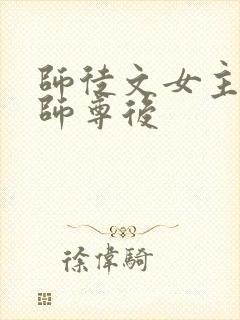 師徒文女主
師尊後
徐偉騎